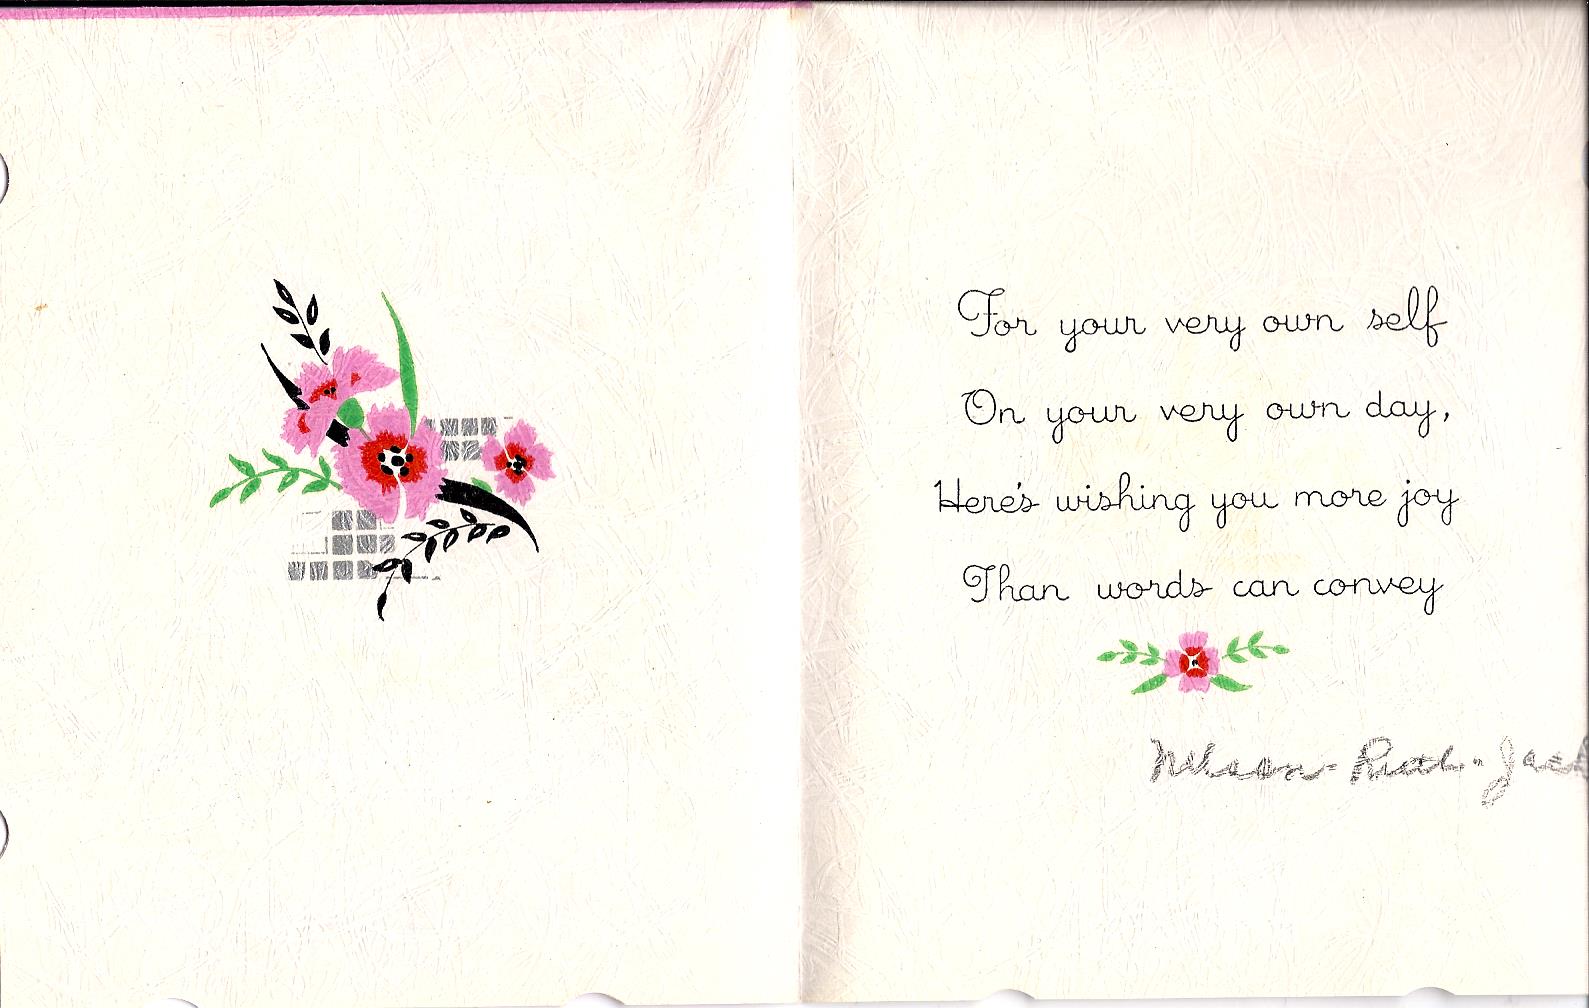 For your very own self
On your very own day,
Here's wishing you more joy
Than words can convey
Nelson - Ruth - Jack